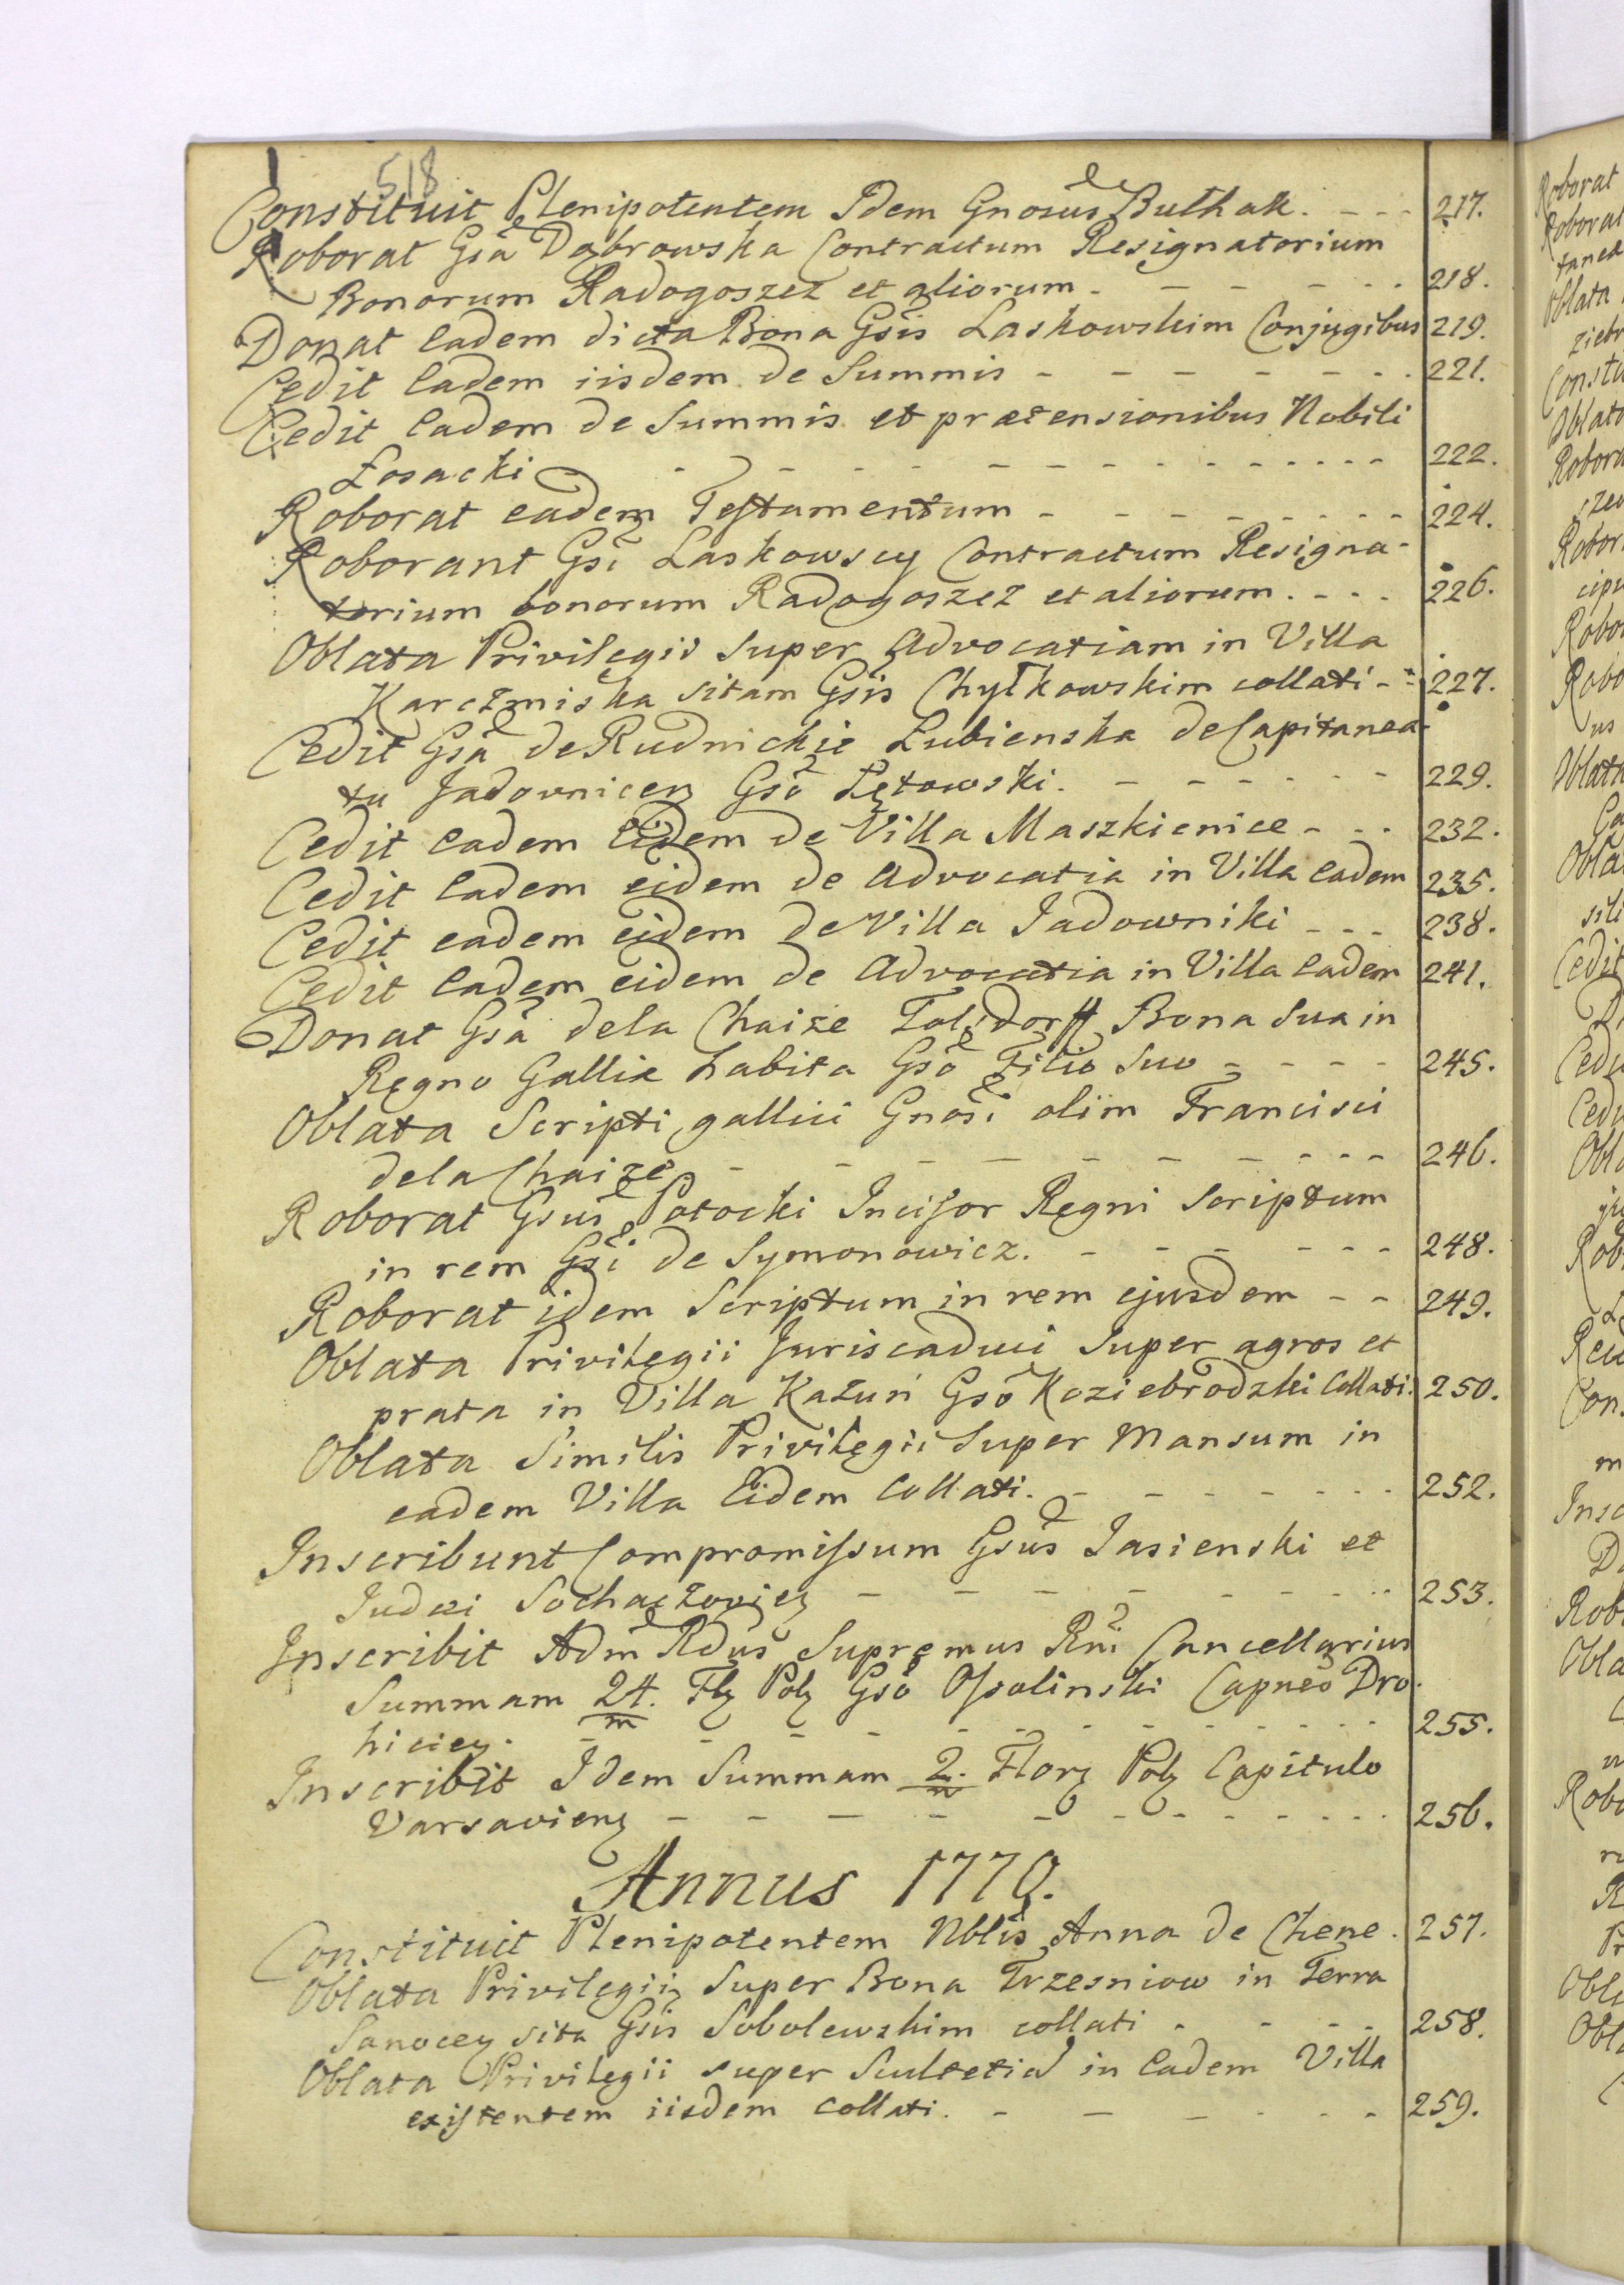 518
Constituit Plenipotentem Idem Gnosus Bułhak. - - - 217.
Roborat Gsa Dąbrowska Contractum Resignatorium
Bonorum Radogoszcz et aliorum. - - - - - 218.
Donat Eadem dicta Bona Gsis Laskowskim Conjugibus 219.
Cedit Eadem iisdem de Summis - - - - - - 221.
Cedit Eadem de Summis et praetensionibus Nobili
Łosacki - - - - - - - - - 222.
Roborat eadem Testamentum - - - - - - 224.
Roborant Gsi Laskowscy Contractum Resigna-
torium bonorum Radogoszcz et aliorum. - - - 226.
Oblata Privilegii super Advocatiam in Villa
Karczmiska sitam Gsis Chylkowskim collati - - 227.
Cedit Gsa de Rudnickie Łubienska de Capitanea-
tu Jadovnicen Gso Łętowski. - - - - - 229.
Cedit Eadem Eidem de Villa Maszkienice - - - 232.
Cedit Eadem eidem de Advocatia in Villa eadem 235.
Cedit eadem eidem de Villa Jadowniki - - - 238.
Cedit Eadem eidem de Advocatia in Villa Eadem 241.
Donat Gsa de la Chaize Tolsdorff Bona sua in
Regno Galliæ habita Gso Filio suo - - - - 245.
Oblata Scripti gallici Gnosi olim Francisci
de la Chaize - - - - - - - - - 246.
Roborat Gsus Potocki Incisor Regni Scriptum
in rem Gsi de Symonowicz. - - - - - - 248.
Roborat idem Scriptum in rem ejusdem - - 249.
Oblata Privilegii Juriscaduci super agros et
prata in Villa Każuń Gso Koziebrodzki Collati. 250.
Oblata Similis Privilegii super Mansum in
eadem Villa Eidem Collati. - - - - - - 252.
Inscribunt Compromissum Gsus Jasienski et
Judæi Sochaczovien - - - - - - - 253.
Inscribit Adm Rdus Supremus Rni Cancellarius
Summam 24/m Flg Polg Gso Ossolinski Capneo Dro-
hicien. - - - - - - - - - 255.
Inscribit Idem Summam 2/m Florg Polg Capitulo
Varsavieng - - - - - - - - - 256.
Annus 1770.
Constituit Plenipotentem Nblis Anna de Chene. 257.
Oblata Privilegii super Bona Trzesniow in Terra
Sanocen sita Gsis Sobolewskim collati - - - - 258.
Oblata Privilegii super Scultetia in Eadem Villa
existentem iisdem collati. - - - - - - 259.